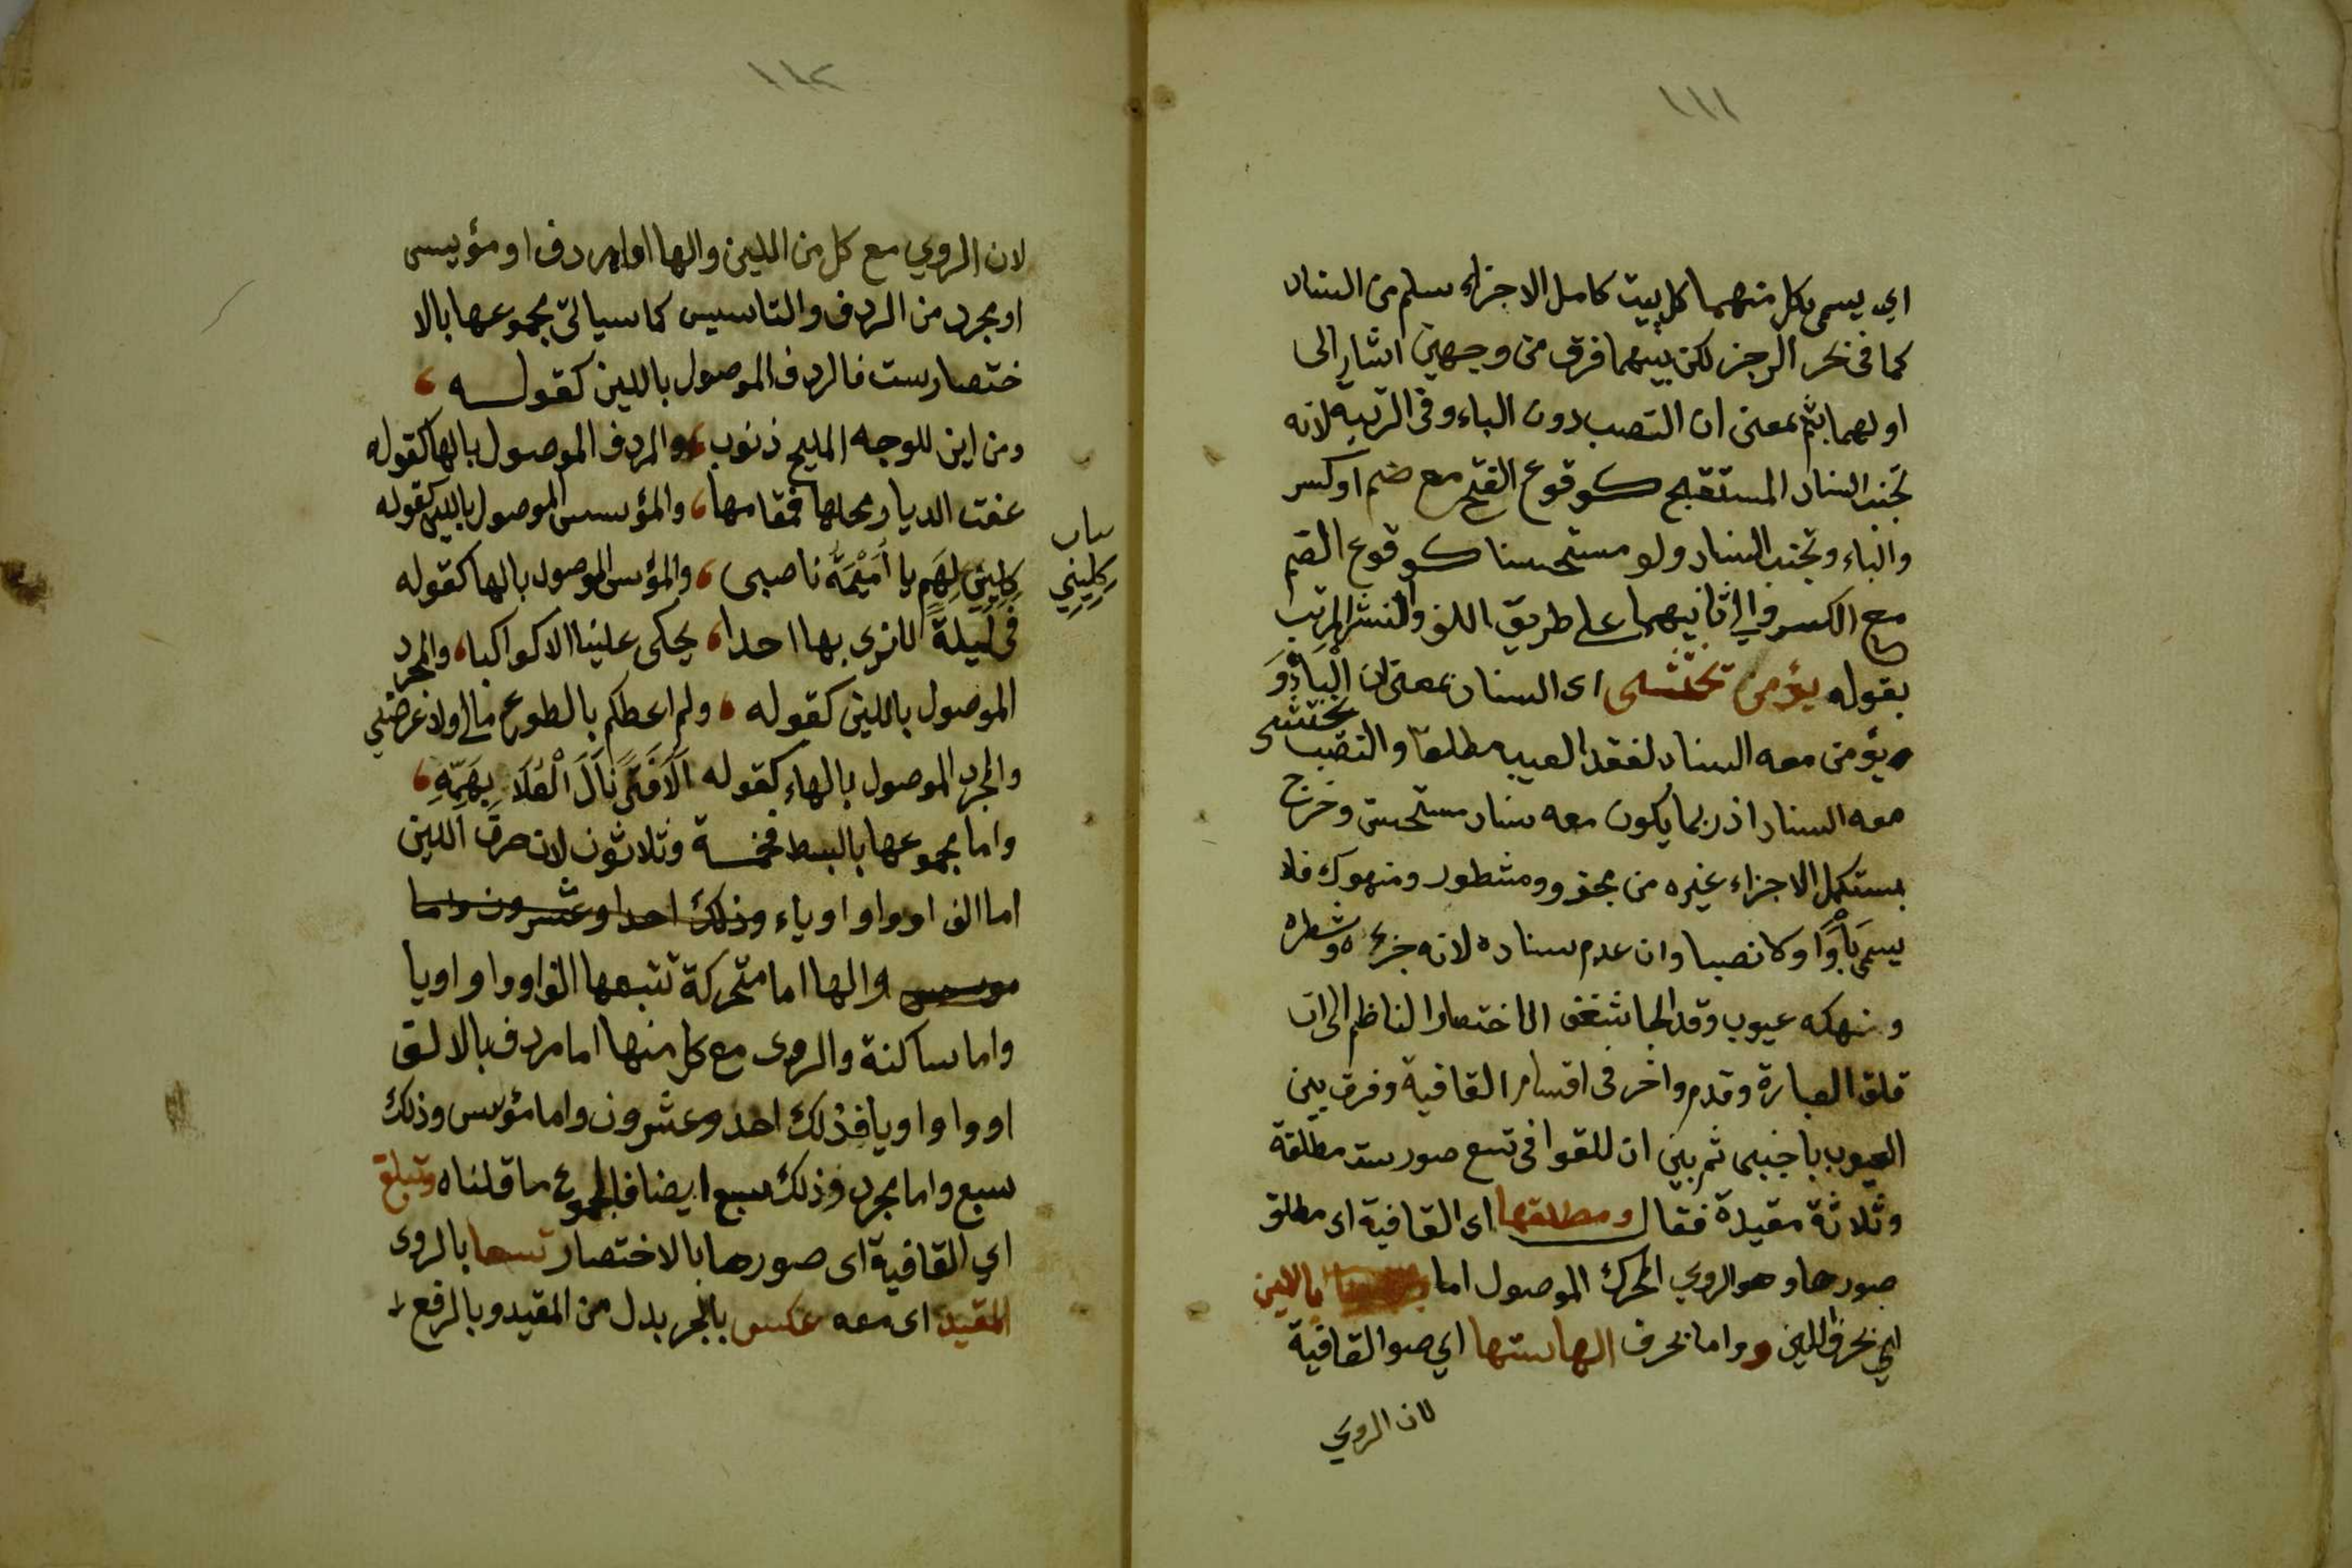 ١١١
اي يسمى بكل منهما كل بيت كامل الاجزاء سلم من السناد
كما في بحر الرجز لكن بينهما فرق من وجهين اشار الى
اولهما بثم بمعنى ان النصب دون الباء وفي الرتبه لانه
تجنب السناد المستقبح كوقوع الفتح مع ضم او كسر
والباء وتجنب السناد ولو مستحسنا كوقوع الضم
مع الكسر والى ثانيهما على طريق اللف والنشر المرتب
بقوله يؤمن تختشى اى السناد بمعنى ان البأو و
يؤمن معه السناد لفقد العيب مطلقا والنصب يختشى
معه السناد اذ ربما يكون معه سناد مستحسن وخرج
بمستكمل الاجزاء غيره من مجزو ومشطور ومنهوك فلا
يسمى بأوا ولا نصبا وان عدم سناده لانه جزءه وشطره
ونهكه عيوب وقد الجا شغف الاختصار الناظم الى ان
قلق العبارة وقدم واخر في اقسام القافية وفرق بين
العيوب باجنبى ثم بين ان للقوافى تسع صور ست مطلقة
وثلاثة مقيدة فقال ومطلقها اى القافية اى مطلق
صورها وهو الروي المحرك الموصول اما باللين
اي بحرف اللين و واما بحرف الها ستها اي صو القافية
لان الروي
١١٢
لان الروي مع كل من اللين والها اما مردف او مؤسس
او مجرد من الردف والتاسيس كما سياتى مجموعها بالا
ختصار ست فالردف الموصول باللين كقولـه ،
ومن اين للوجه المليح ذنوب ، والمردف الموصول بالها كقوله
عفت الديار محلها فمقامها ، والمؤسس الموصول باللين كقوله
كليني لهم يا أميمة ناصبى ، والمؤسس الموصول بالها كقوله
في ليلة لا نرى بها احدا ، يحكى علينا الا كواكبا ، والمجرد
الموصول باللين كقوله ، ولم اعطكم بالطوع مالي ولا عرضي
والمجرد الموصول بالهاء كقوله ألا فتى نال العلا بهمه ،
واما مجموعها بالبسط فخمسة وثلاثون لان حرف اللين
اما الف او واو او ياء وذلك احد وعشرون واما
موسس والها اما متحركة تتبعها الف او واو او يا
واما ساكنة والروى مع كل منها اما مردف بالالف
او واو او يا فذلك احد وعشرون واما مؤسس وذلك
سبع واما مجرد وذلك سبع ايضا فالمجموع ما قلناه وتبلغ
اي القافية اى صورها بالاختصار تسعا بالروى
المقيد اى معه عكس بالجر بدل من المقيد وبالرفع
بيان
كليني